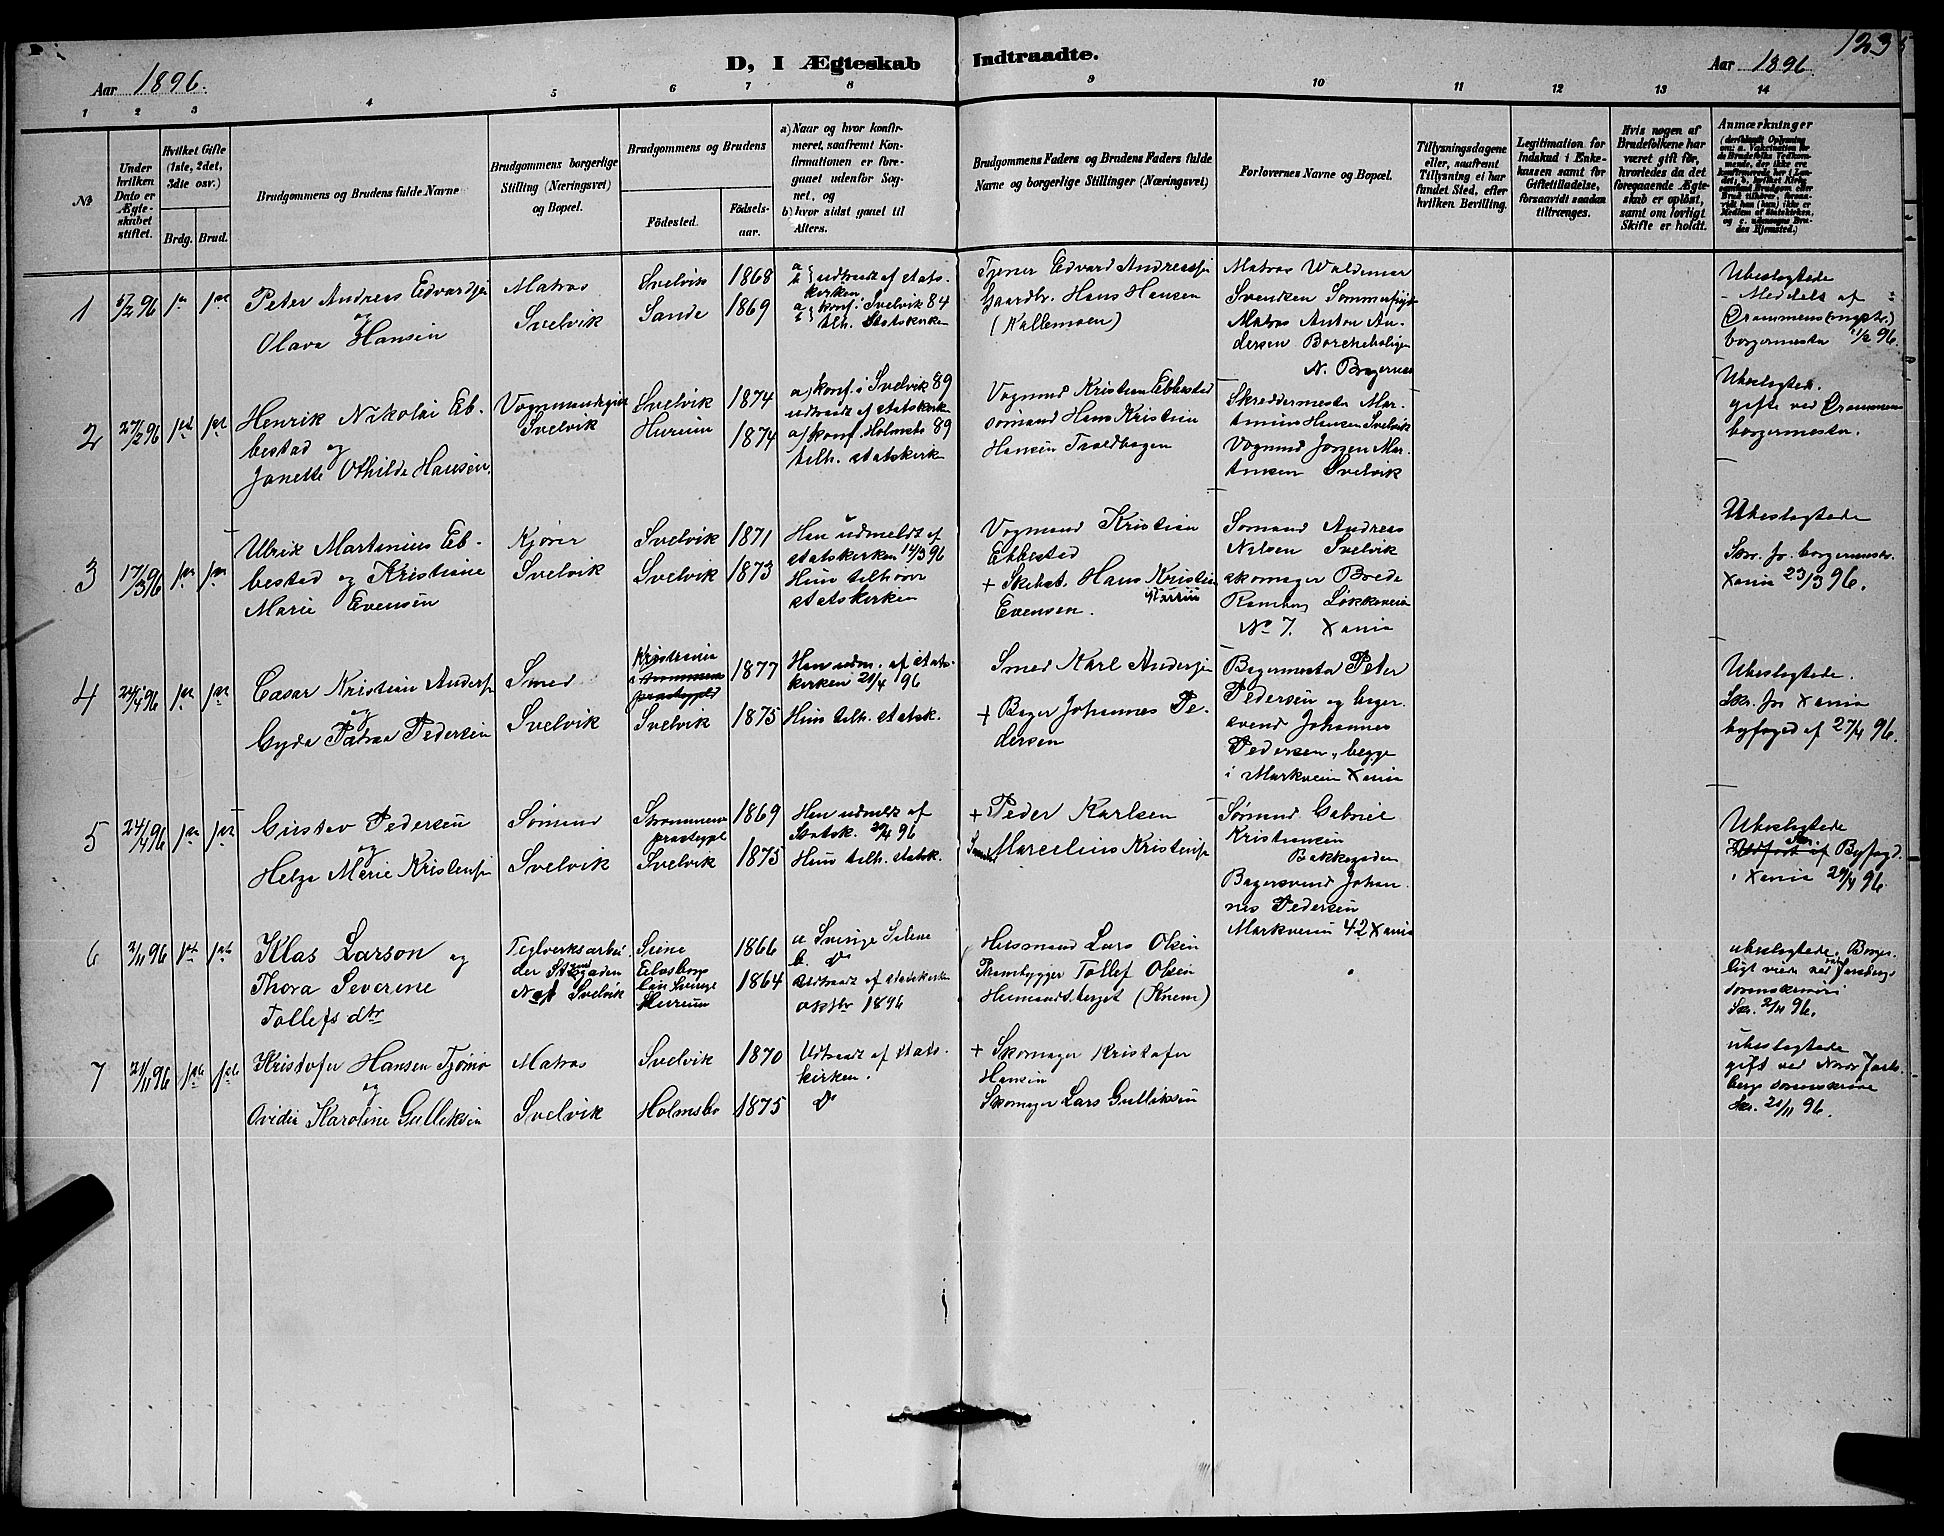 D, I Ægteskab Indtraadte.
123
Aar 1896.
Aar 1896.
1 2 3 4 5 6 7 8 9 10 11 12 13 14
No
Under hvilken Dato er Ægteskabet stiftet.
Hvilket Gifte (1ste, 2det, 3die osv.)
Brdg. Brud.
Brudgommens og Brudens fulde Navne
Brudgommens borgerlige Stilling (Næringsvei) og Bopæl.
Brudgommens og Brudens
Fødested.
Födselsaar.
a) Naar og hvor konfirmeret, saafremt Konfirmationen er foregaaet udenfor Sognet, og
b) hvor sidst gaaet til Alters.
Brudgommens Faders og Brudens Faders fulde Navne og borgerlige Stillinger (Næringsvei)
Forlovernes Navne og Bopæl.
Tillysningsdagene eller, saafremt Tillysning ei har fundet Sted, efter hvilken Bevilling.
Legitimation for Indskud i Enkekassen samt for Giftetilladelse, forsaavidt saadan tiltrænges.
Hvis nogen af Brudefolkene har været gift før, hvorledes da det foregaaende Ægteskab er opløst, samt om lovligt Skifte er holdt.
Anmærkninger
1
5/2 96
Peter Andreas Edvardsen
og
Olava Hansen
Matros
Svelvik
Svelvik
Sande
1868
1869
udtraadt af stats-
kirken
konf. i Svelvik 84
tilh. Statskirken
Tjener Edvard Andreassen
Gaardbr. Hans Hansen
(Kallemoen)
Matros Waldemar
Svendsen
Matros Anton An-
dersen
N. Bragernes
Ubeslægtede
Meddelt af
Drammens
borgermester
2
27/2 96
Henrik Nikolai Eb-
bestad og
Janette Othilde Hansen
Svelvik
Svelvik
Hurum
1874
1874
a) konf. i Svelvik 89
udtraadt af statskirken
a) konf. Holmsbo 89
tilh. statskirken
Vogmand Kristian Ebbestad
sømand Hans Kristian
Hansen Troldhagen
Skreddermester Mar-
tinius Hansen Svelvik
Vogmand Jørgen Mar-
tinsen Svelvik
Ubeslægtede.
gifte ved Drammens
borgermester.
3
17/3 96
Ulrik Martinius Eb-
bestad og Kristiane
Marie Evensen
Kjører
Svelvik
Svelvik
Svelvik
1871
1873
Han udmeldt af
statskirken 14/3 96
Hun tilhører
statskirken
Vogmand Kristian
Ebbestad
+ Skibst. Hans Kristian
Evensen.
Sømand Andreas
Nilsen Svelvik
skomager Brede
Ramberg Løkkaveien
No 7. Xania
Ubeslægtede
Skr. fr. borgermester
Xania 23/3 96.
4
24/4 96
Cæsar Kristian Anders.
og
Gyda Petrea Pedersen
Smed
Svelvik
Kristiania
Svelvik
1877
1875
Han udm. af stats-
kirken 21/4 96
Hun tilh. statsk.
Smed Karl Andersen
+ Bager Johannes Pe-
dersen
Bagermester Peter
Pedersen og bager-
svend Johannes
Pedersen, begge
i Markveien Xania
Ubeslægtede.
Skr. fr. Xania
byfoged af 27/4 96.
5
24/4 96
Gustav Pedersen
og
Helga Marie Kristensen
Sømand
Svelvik
Strømmens
præstegjeld
Svelvik
1869
1875
Han udmeldt af
Statsk. 20/4 96
Hun tilh. statsk.
+ Peder Karlsen
Marcelius Kristensen
Sømand Gabriel
Kristiansen
Bakkegaden
Bagersvend Johan-
nes Pedersen
Markveien 42 Xania
Ubeslægtede
Byfogd.
i Xania 29/4 96.
6
2/11 96
Klas Larson og
Thora Severine
Tollefsdtr
Teglverksarbei-
der
Svelvik
Hurum
1866
1864
a Sverige
b. do
Udtraadt af statskirken
oktbr 1896
Husmand Lars Olsen
Prambygger Tollef Olsen
(Knem)
ubeslægtede. Borger-
ligt viede ved Jarlsberg
sorenskriveri
Skr. 2/11 96.
7
21/11 96
Kristofer Hansen Tjømø
og
Ovidia Karoline Gulliksen
Matros
Svelvik
Svelvik
Holmsbo
1870
1875
Udtraadt af stats-
kirken.
do
+ Skomager Kristofer
Hansen
Skomager Lars Gulliksen
ubeslægtede
gift ved Nordre Jarls-
bergs sorenskriver
Skr. 21/11 96.